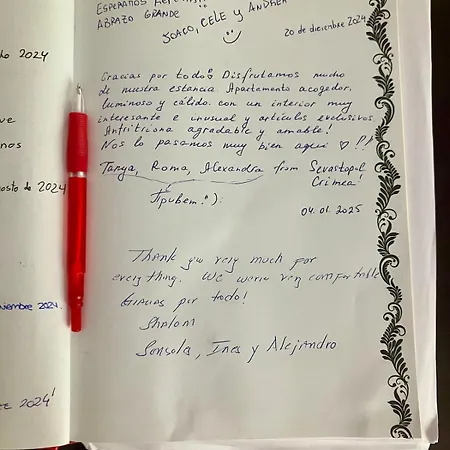 ABRAZO GRANDE
JOACO, CELE Y ANDREA
20 de diciembre 2024
Gracias por todo! Disfrutamos mucho
de nuestra estancia Apartamento acogedor,
luminoso y cálido. con un interior muy
interesante e unusual y artículos exclusivos
Anfitriona agradable y amable!
Nos lo pasamos muy bien aqui ♡!!!
Tanya, Roma, Alexandra from Sevastopol
Crimea!
Привет! :).
04.01.2025
Thank you very much for
everything. We were very comfortable
Gracias por todo!
Shalom
Sonsola, Ines y Alejandro
2024
ve
nos
agosto de 2024
viembre 2024.
2024!